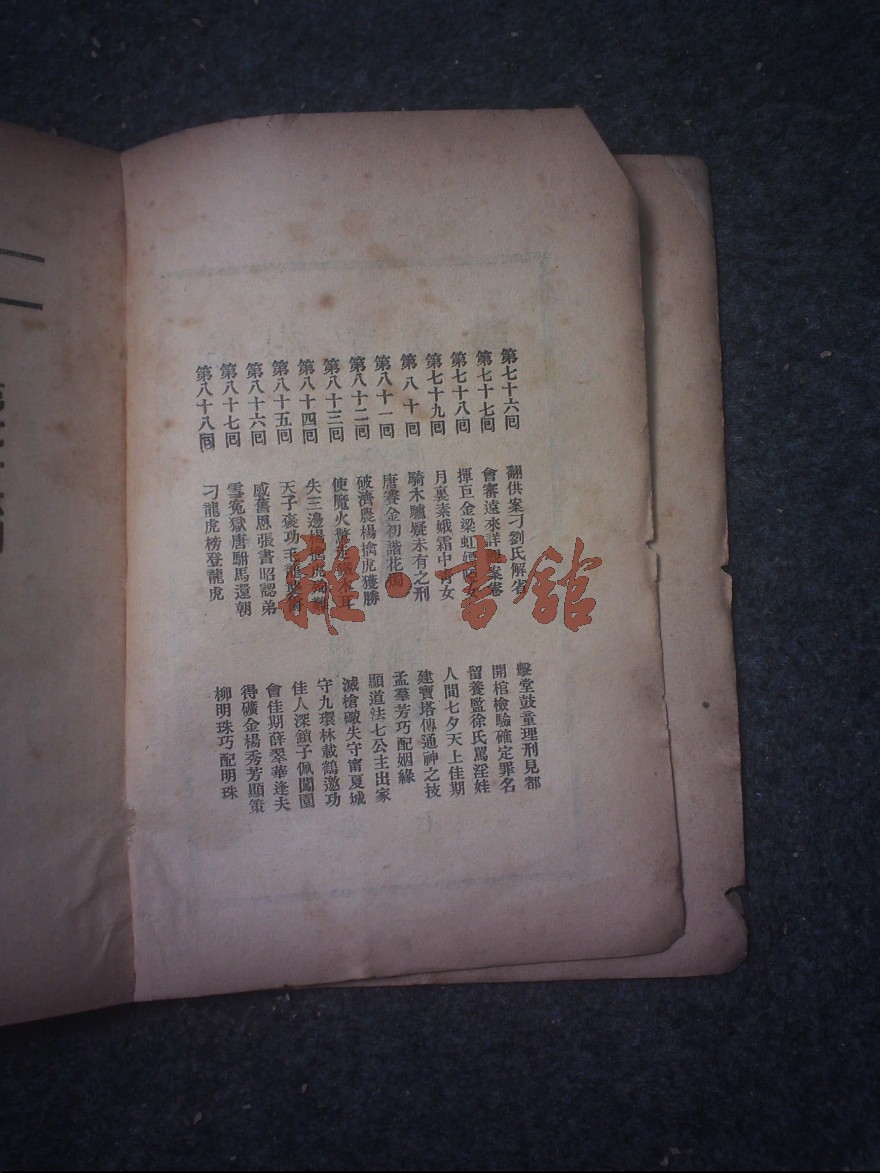 第七十六回 翻供案刁劉氏解省 擊堂鼓童理刑見都
第七十七回 會審遠來詳 案卷 開棺檢驗確定罪名
第七十八回 揮巨金梁虹 女 留養監徐氏罵淫娃
第七十九回 月裏素娥霜中 女 人間七夕天上佳期
第八十回 騎木驢疑未有之刑 建寶塔傳通神之技
第八十一回 唐賽金初諧花燭 孟羣芳巧配姻緣
第八十二回 破濟農楊擒虎獲勝 顯道法七公主出家
第八十三回 使魔火 木耳 滅槍礮失守甯夏城
第八十四回 失三邊楊 守九環林載鶴邀功
第八十五回 天子褒功毛龍 佳人深鎖子佩闖園
第八十六回 感舊恩張書昭認弟 會佳期薛翠華逢夫
第八十七回 雪冤獄唐駙馬還朝 得礦金楊秀芳顯策
第八十八回 刁龍虎榜登龍虎 柳明珠巧配明珠
雜·書館